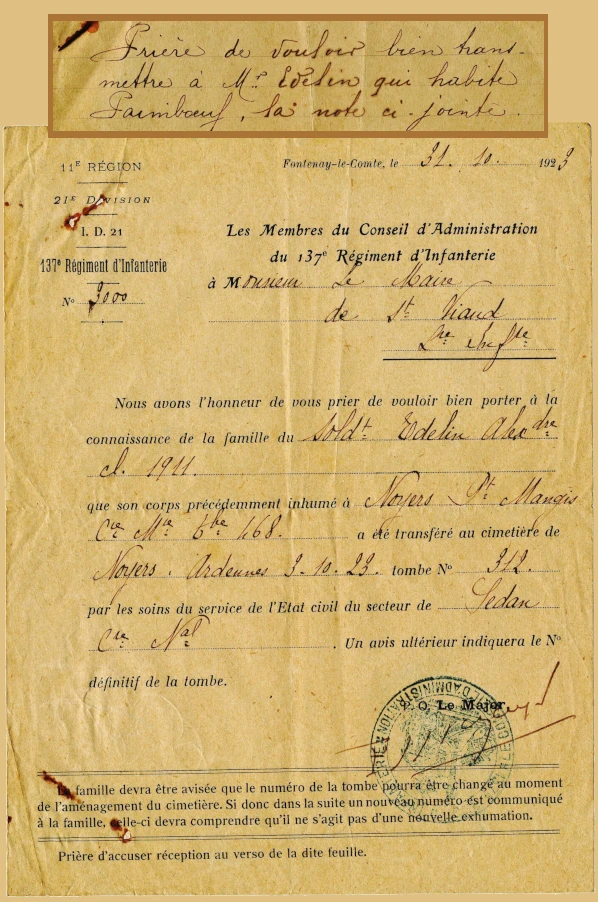 Prière de vouloir bien trans-
mettre à Mr. Edelin qui habite
Paimbœuf, la note ci-jointe.
11E RÉGION
21E DIVISION
I. D. 21
137e Régiment d'Infanterie
No 3000
Fontenay-le-Comte, le 31. 10. 1923
Les Membres du Conseil d'Administration
du 137e Régiment d'Infanterie
à Monsieur Le Maire
de St Viaud
Lre Infre
Nous avons l'honneur de vous prier de vouloir bien porter à la
connaissance de la famille du Soldt Edelin Alexdre
cl. 1911.
que son corps précédemment inhumé à Noyers Pt Mangis
Cre Mre Tbe 468. a été transféré au cimetière de
Noyers. Ardennes 3.10.23. tombe No 312.
par les soins du service de l'Etat civil du secteur de Sedan
Cre Nal . Un avis ultérieur indiquera le No
définitif de la tombe.
P. O. Le Major,
La famille devra être avisée que le numéro de la tombe pourra être changé au moment
de l'aménagement du cimetière. Si donc dans la suite un nouveau numéro est communiqué
à la famille, celle-ci devra comprendre qu'il ne s'agit pas d'une nouvelle exhumation.
Prière d'accuser réception au verso de la dite feuille.